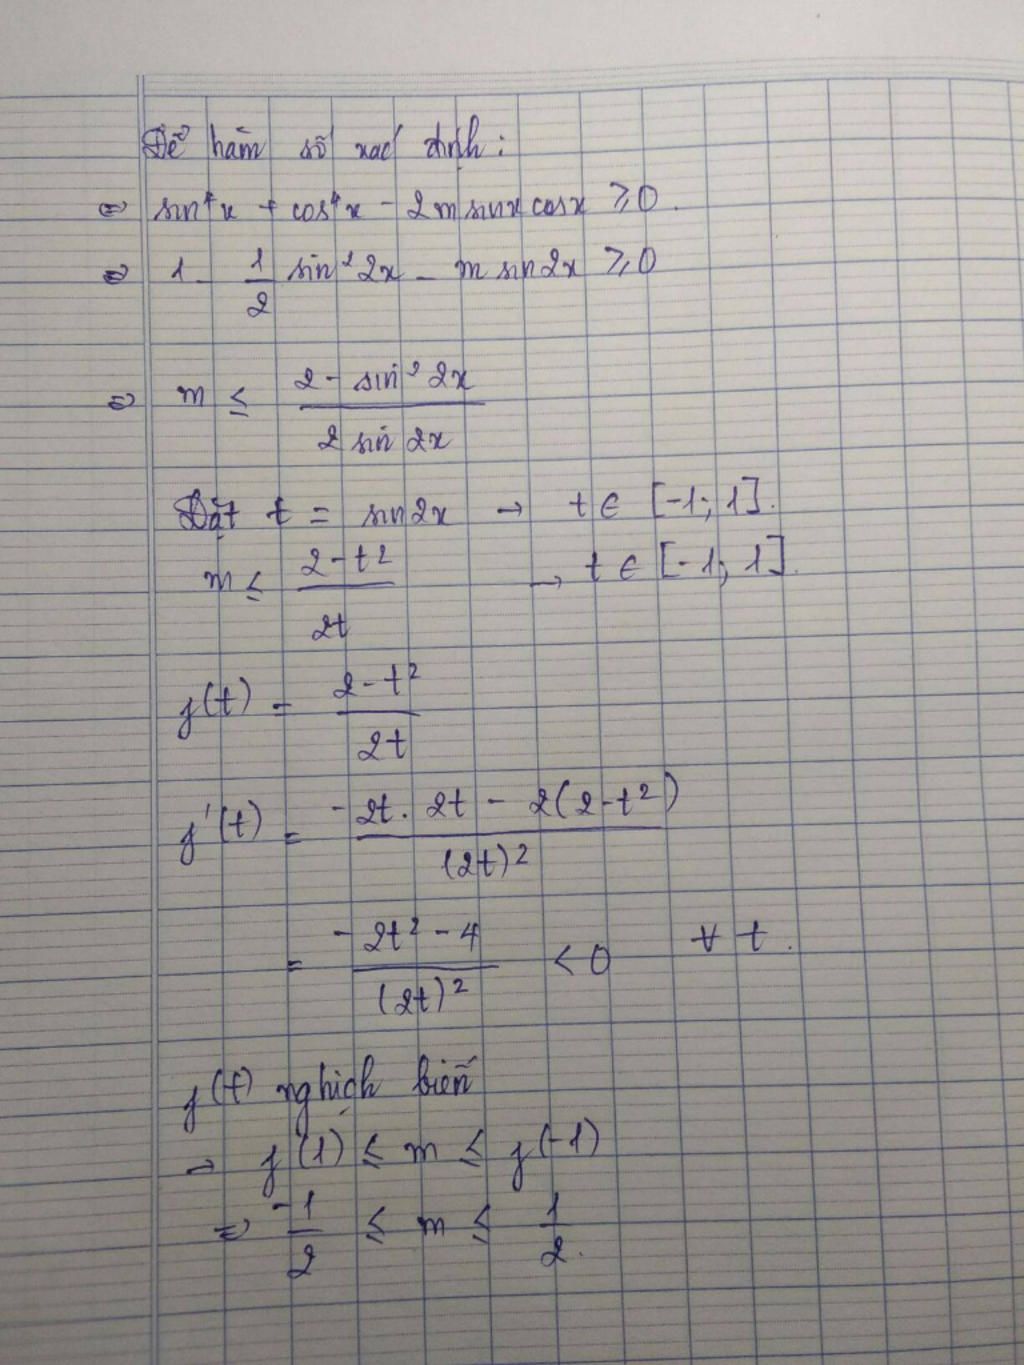 Để hàm số xác định:
⇔ sin⁴x + cos⁴x - 2m sinx cosx ≥ 0.
⇔ 1 - 1/2 sin²2x - m sin2x ≥ 0
⇔ m ≤ (2 - sin²2x)/(2 sin 2x)
Đặt t = sin2x → t ∈ [-1; 1].
m ≤ (2 - t²)/(2t) → t ∈ [-1; 1].
f(t) = (2 - t²)/(2t)
f'(t) = (-2t. 2t - 2(2 - t²))/((2t)²)
= (-2t² - 4)/((2t)²) < 0 ∀ t.
f(t) nghịch biến
→ f(1) ≤ m ≤ f(-1)
⇔ -1/2 ≤ m ≤ 1/2.